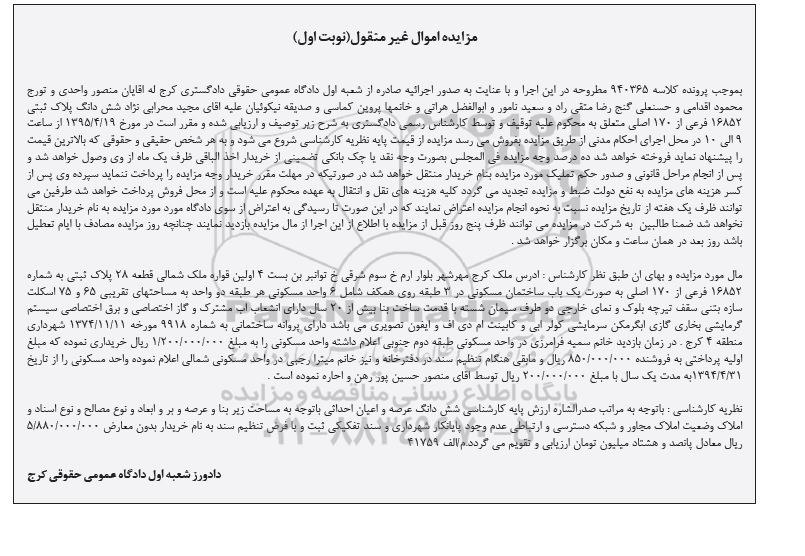 مزایده اموال غیر منقول(نوبت اول)
بموجب پرونده کلاسه ۹۴۰۳۶۵ مطروحه در این اجرا و با عنایت به صدور اجرائیه صادره از شعبه اول دادگاه عمومی حقوقی دادگستری کرج له اقایان منصور واحدی و تورج
محمود اقدامی و حسنعلی گنج رضا متقی راد و سعید نامور و ابوالفضل هراتی و خانمها پروین کماسی و صدیقه نیکوئیان علیه اقای مجید محرابی نژاد شش دانگ پلاک ثبتی
۱۶۸۵۲ فرعی از ۱۷۰ اصلی متعلق به محکوم علیه توقیف و توسط کارشناس رسمی دادگستری به شرح زیر توصیف و ارزیابی شده و مقرر است در مورخ ۱۳۹۵/۴/۱۹ از ساعت
۹ الی ۱۰ در محل اجرای احکام مدنی از طریق مزایده بفروش می رسد مزایده از قیمت پایه نظریه کارشناسی شروع می شود و به هر شخص حقیقی و حقوقی که بالاترین قیمت
را پیشنهاد نماید فروخته خواهد شد ده درصد وجه مزایده فی المجلس بصورت وجه نقد یا چک بانکی تضمینی از خریدار اخذ الباقی ظرف یک ماه از وی وصول خواهد شد و
پس از انجام مراحل قانونی و صدور حکم تملیک مورد مزایده بنام خریدار منتقل خواهد شد در صورتیکه در مهلت مقرر خریدار وجه مزایده را پرداخت ننماید سپرده وی پس از
کسر هزینه های مزایده به نفع دولت ضبط و مزایده تجدید می گردد کلیه هزینه های نقل و انتقال به عهده محکوم علیه است و از محل فروش پرداخت خواهد شد طرفین می
توانند ظرف یک هفته از تاریخ مزایده نسبت به نحوه انجام مزایده اعتراض نمایند که در این صورت تا رسیدگی به اعتراض از سوی دادگاه مورد مورد مزایده به نام خریدار منتقل
نخواهد شد ضمنا طالبین به شرکت در مزایده می توانند ظرف پنج روز قبل از مزایده با اطلاع از این اجرا از مال مزایده بازدید نمایند چنانچه روز مزایده مصادف با ایام تعطیل
باشد روز بعد در همان ساعت و مکان برگزار خواهد شد .
مال مورد مزایده و بهای ان طبق نظر کارشناس : ادرس ملک کرج مهرشهر بلوار ارم خ سوم شرقی خ توانبر بن بست ۴ اولین قواره ملک شمالی قطعه ۲۸ پلاک ثبتی به شماره
۱۶۸۵۲ فرعی از ۱۷۰ اصلی به صورت یک باب ساختمان مسکونی در ۳ طبقه روی همکف شامل ۶ واحد مسکونی هر طبقه دو واحد به مساحتهای تقریبی ۶۵ و ۷۵ اسکلت
سازه بتنی سقف تیرچه بلوک و نمای خارجی دو طرف سیمان شسته با قدمت ساخت بنا بیش از ۲۰ سال دارای انشعاب اب مشترک و گاز اختصاصی و برق اختصاصی سیستم
گرمایشی بخاری گازی ابگرمکن سرمایشی کولر ابی و کابینت ام دی اف و ایفون تصویری می باشد دارای پروانه ساختمانی به شماره ۹۹۱۸ مورخه ۱۳۷۴/۱۱/۱۱ شهرداری
منطقه ۴ کرج . در زمان بازدید خانم سمیه فرامرزی در واحد مسکونی طبقه دوم جنوبی اعلام داشته واحد مسکونی را به مبلغ ۱/۲۰۰/۰۰۰/۰۰۰ ریال خریداری نموده که مبلغ
اولیه پرداختی به فروشنده ۸۵۰/۰۰۰/۰۰۰ ریال و مابقی هنگام تنظیم سند در دفترخانه و نیز خانم میترا رجبی در واحد مسکونی شمالی اعلام نموده واحد مسکونی را از تاریخ
۱۳۹۴/۴/۳۱به مدت یک سال با مبلغ ۲۰۰/۰۰۰/۰۰۰ ریال توسط اقای منصور حسین پور رهن و اجاره نموده است .
نظریه کارشناسی : باتوجه به مراتب صدرالشاره ارزش پایه کارشناسی شش دانگ عرصه و اعیان احداثی باتوجه به مساحت زیر بنا و عرصه و بر و ابعاد و نوع مصالح و نوع اسناد و
املاک وضعیت املاک مجاور و شبکه دسترسی و ارتباطی عدم وجود پایانکار شهرداری و سند تفکیکی ثبت و با فرض تنظیم سند به نام خریدار بدون معارض ۵/۸۸۰/۰۰۰/۰۰۰
ریال معادل پانصد و هشتاد میلیون تومان ارزیابی و تقویم می گردد.م/الف ۴۱۷۵۹
دادورز شعبه اول دادگاه عمومی حقوقی کرج
ParsNamadData
پایگاه اطلاع رسانی مناقصه و مزایده